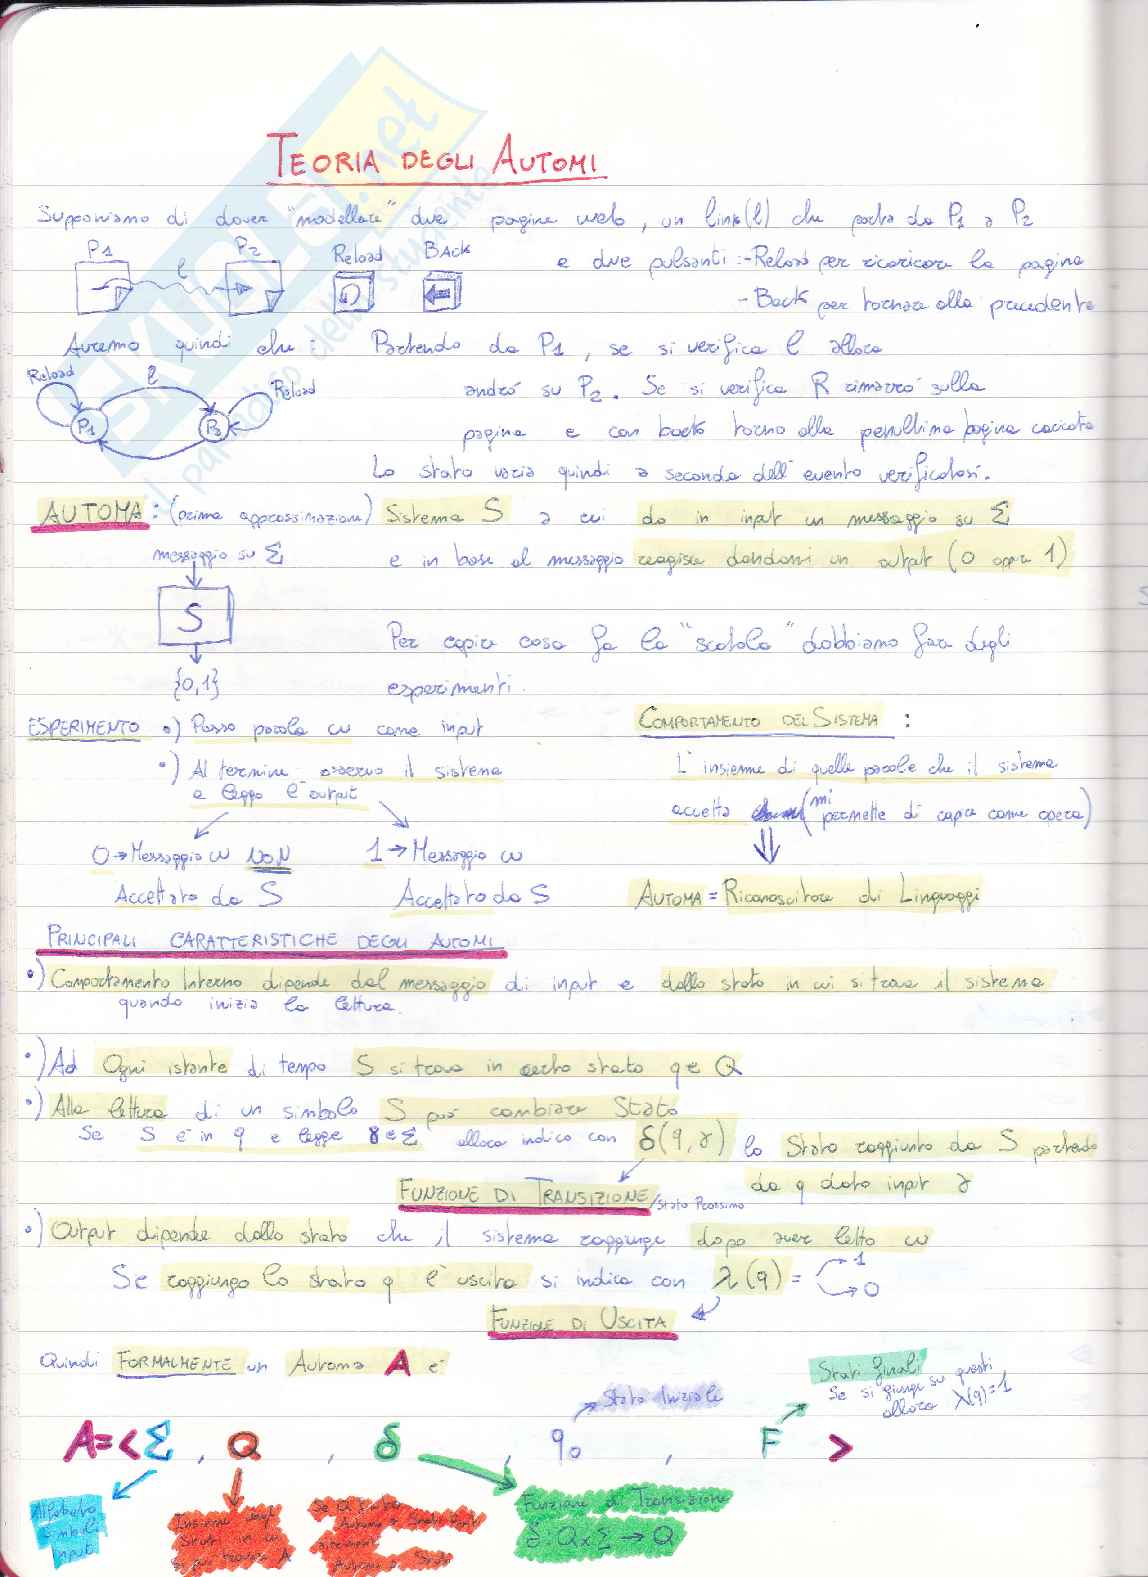 TEORIA DEGLI AUTOMI
Supponiamo di dover "modellare" due pagine web, un link(l) che porta da P1 a P2
P1 l P2 Reload BACK
e due pulsanti: - Reload per ricaricare la pagina
- Back per tornare alla precedente
Avremo quindi che: Partendo da P1, se si verifica l allora
Reload l Reload
andrò su P2. Se si verifica R rimarrò sulla
P1 P2
pagina e con back torno alla penultima pagina caricata
Lo stato varia quindi a seconda dell'evento verificatosi.
AUTOMA: (prima approssimazione) Sistema S a cui do in input un messaggio su Σ
messaggio su Σ
e in base al messaggio reagisce dandomi un output (0 oppure 1)
S
Per capire cosa fa la "scatola" dobbiamo fare degli
{0,1}
esperimenti.
ESPERIMENTO •) Passo parola w come input
•) Al termine osservo il sistema
e leggo l'output
0 → Messaggio w NON
Accettato da S
1 → Messaggio w
Accettato da S
COMPORTAMENTO DEL SISTEMA:
L'insieme di quelle parole che il sistema
accetta (mi permette di capire come opera)
AUTOMA = Riconoscitore di Linguaggi
PRINCIPALI CARATTERISTICHE DEGLI AUTOMI
•) Comportamento Interno dipende dal messaggio di input e dallo stato in cui si trova il sistema
quando inizia la lettura.
•) Ad Ogni istante di tempo S si trova in certo stato q∈Q
•) Alla lettura di un simbolo S può cambiare Stato
Se S è in q e legge γ∈Σ allora indico con δ(q,γ) lo Stato raggiunto da S partendo
da q dato input γ
FUNZIONE DI TRANSIZIONE/Stato Prossimo
•) Output dipende dallo stato che il sistema raggiunge dopo aver letto w
Se raggiungo lo stato q l'uscita si indica con λ(q) = 1
0
FUNZIONE DI USCITA
Quindi FORMALMENTE un Automa A è
Stati finali
Se si giunge su questi
allora λ(q)=1
Stato Iniziale
A=<Σ, Q, δ, q0, F>
Alfabeto
Simboli
Input
Insieme degli
Stati in cui
si può trovare A
Se Q
Automa a Stati
Automa a Stati
Funzione di Transizione
δ: Q×Σ → Q
SKUOLA.net
il paradiso dello studente